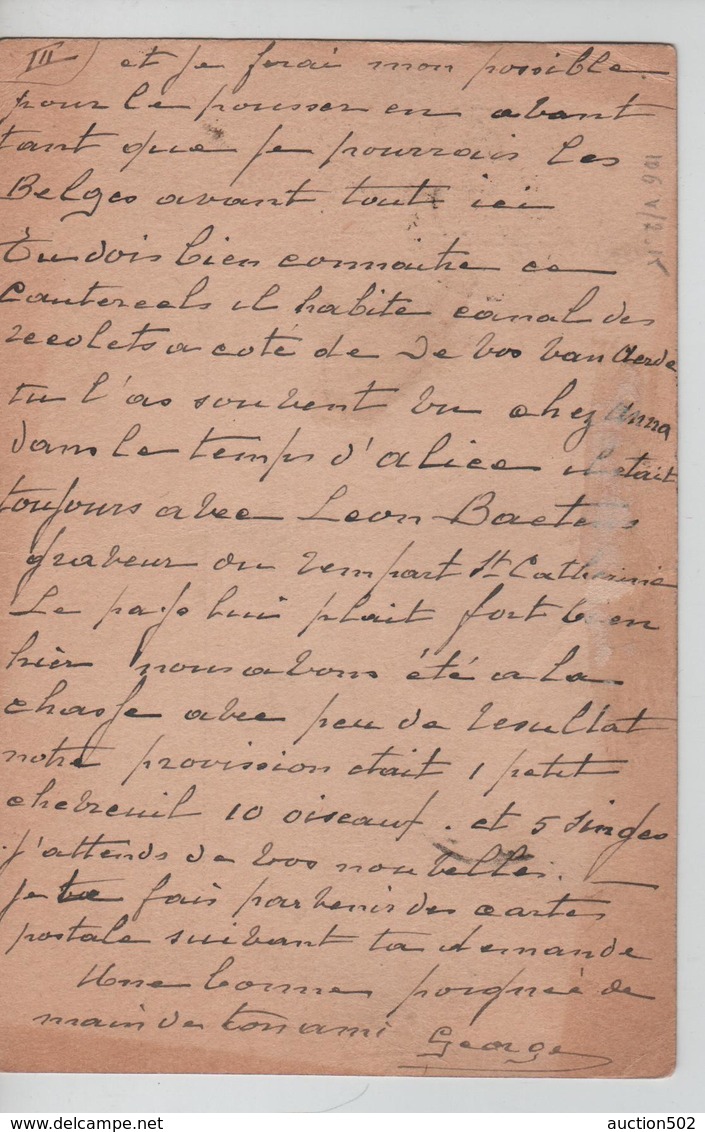 III) et je ferai mon possible
pour le pousser en avant
tant que je pourrais les
Belges avant tout ici
Tu dois bien connaitre ce
Cautereels il habite canal des
recolets a coté de De Vos Van Aerde
tu l'as souvent vu chez Anna
dans le temps d'alice il etait
toujours avec Leon Baetens
graveur du rempart St Catherine
Le pays lui plait fort bien
hier nous avons été a la
chasse avec peu de resultat
notre provission etait 1 petit
chevreuil 10 oiseaux. et 5 singes
J'attends de vos nouvelles. —
je te fais parvenir des cartes
postale suivant ta demande
Une bonne poignée de
main de ton ami George
auction502